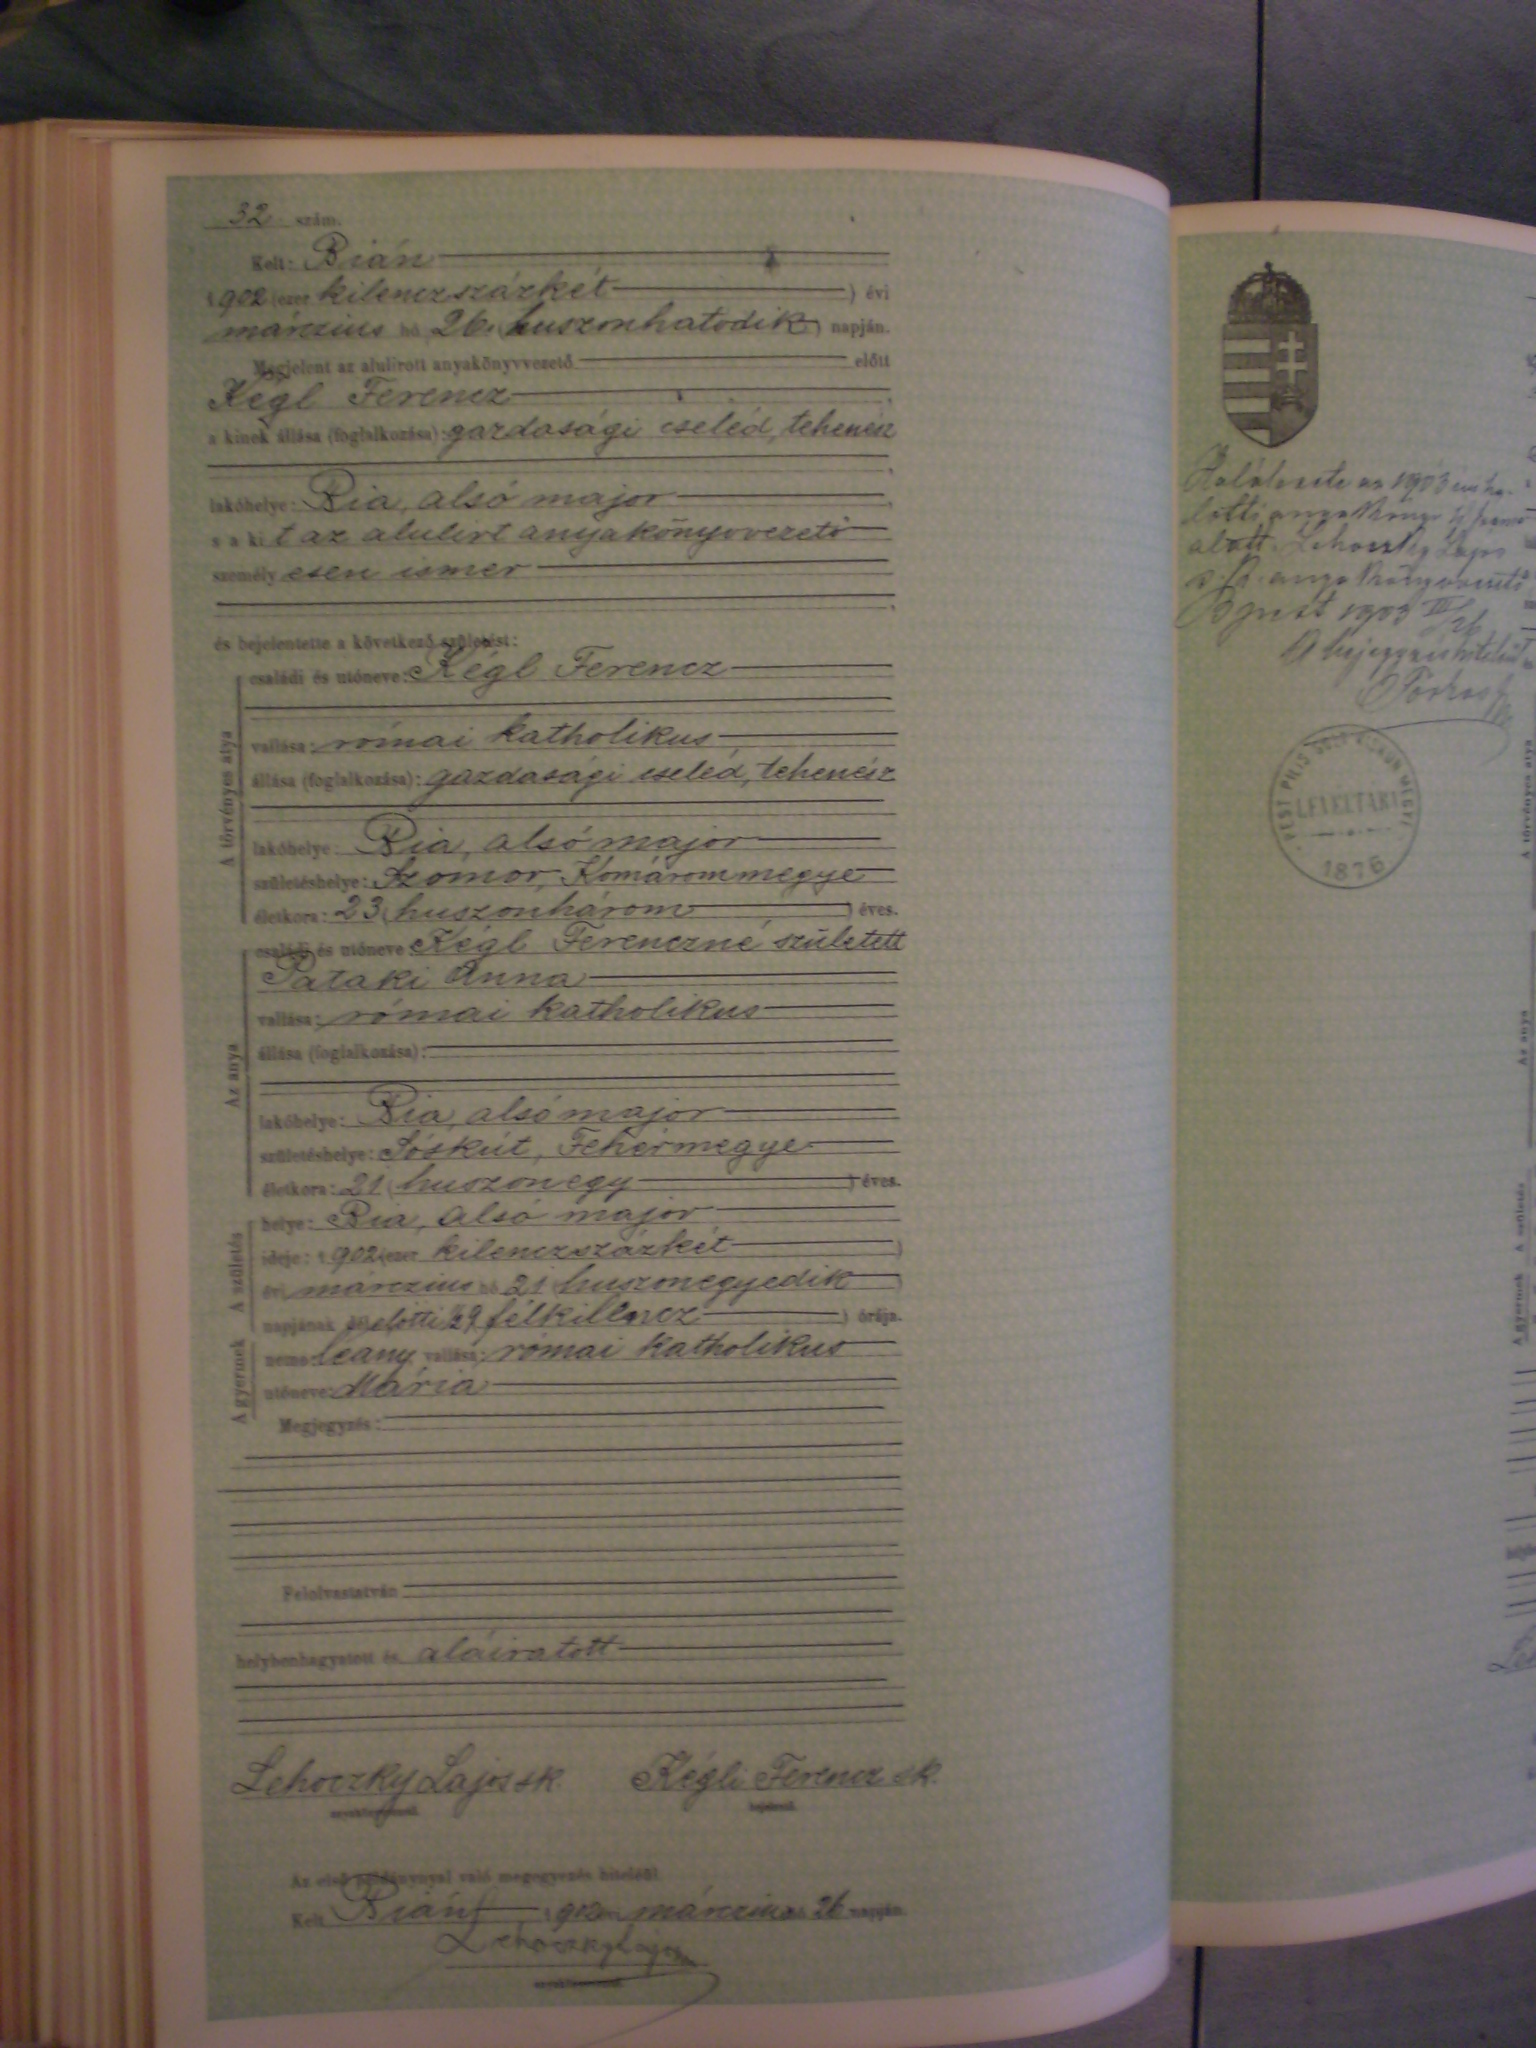 32 szám.
Kelt: Bián
1902 (ezer kilenczszázkét ) évi
márczius hó 26. (huszonhatodik) napján.
Megjelent az alulirott anyakönyvvezető előtt
Kégl Ferencz
a kinek állása (foglalkozása): gazdasági cseléd, tehenész
lakóhelye: Bia, alsó major
a kit az alulirt anyakönyvvezető
személyesen ismer
és bejelentette a következő születést:
A törvényes atya
családi és utóneve: Kégl Ferencz
vallása: római katholikus
állása (foglalkozása): gazdasági cseléd, tehenész
lakóhelye: Bia, alsó major
születéshelye: Szomor, Komárommegye
életkora: 23 (huszonhárom ) éves.
Az anya
családi és utóneve Kégl Ferenczné született
Pataki Anna
vallása: római katholikus
állása (foglalkozása):
lakóhelye: Bia, alsó major
születéshelye: Sóskút, Fehérmegye
életkora: 21 (huszonegy ) éves.
A születés
helye: Bia, alsó major
ideje: 1902 (ezer kilenczszázkét )
évi márczius hó 21 (huszonegyedik )
napjának délelőtti ½9 (félkilencz ) órája.
A gyermek
neme: leány vallása: római katholikus
utóneve: Mária
Megjegyzés:
Felolvastatván
helybenhagyatott és aláiratott
Lehoczky Lajos sk. Kégli Ferencz sk.
anyakönyvvezető. bejelentő.
Az első példánynyal való megegyezés hiteléül
Kelt Bián 1902 évi márczius hó 26 napján.
Lehoczky Lajos
anyakönyvvezető.
az 1903 évi ha-
lotti anyakönyv
alatt Lehoczky Lajos
s. k. anyakönyvvezető
Bpest 1903 III/26
A bejegyzés hiteléül
LEVÉLTÁRA
1876